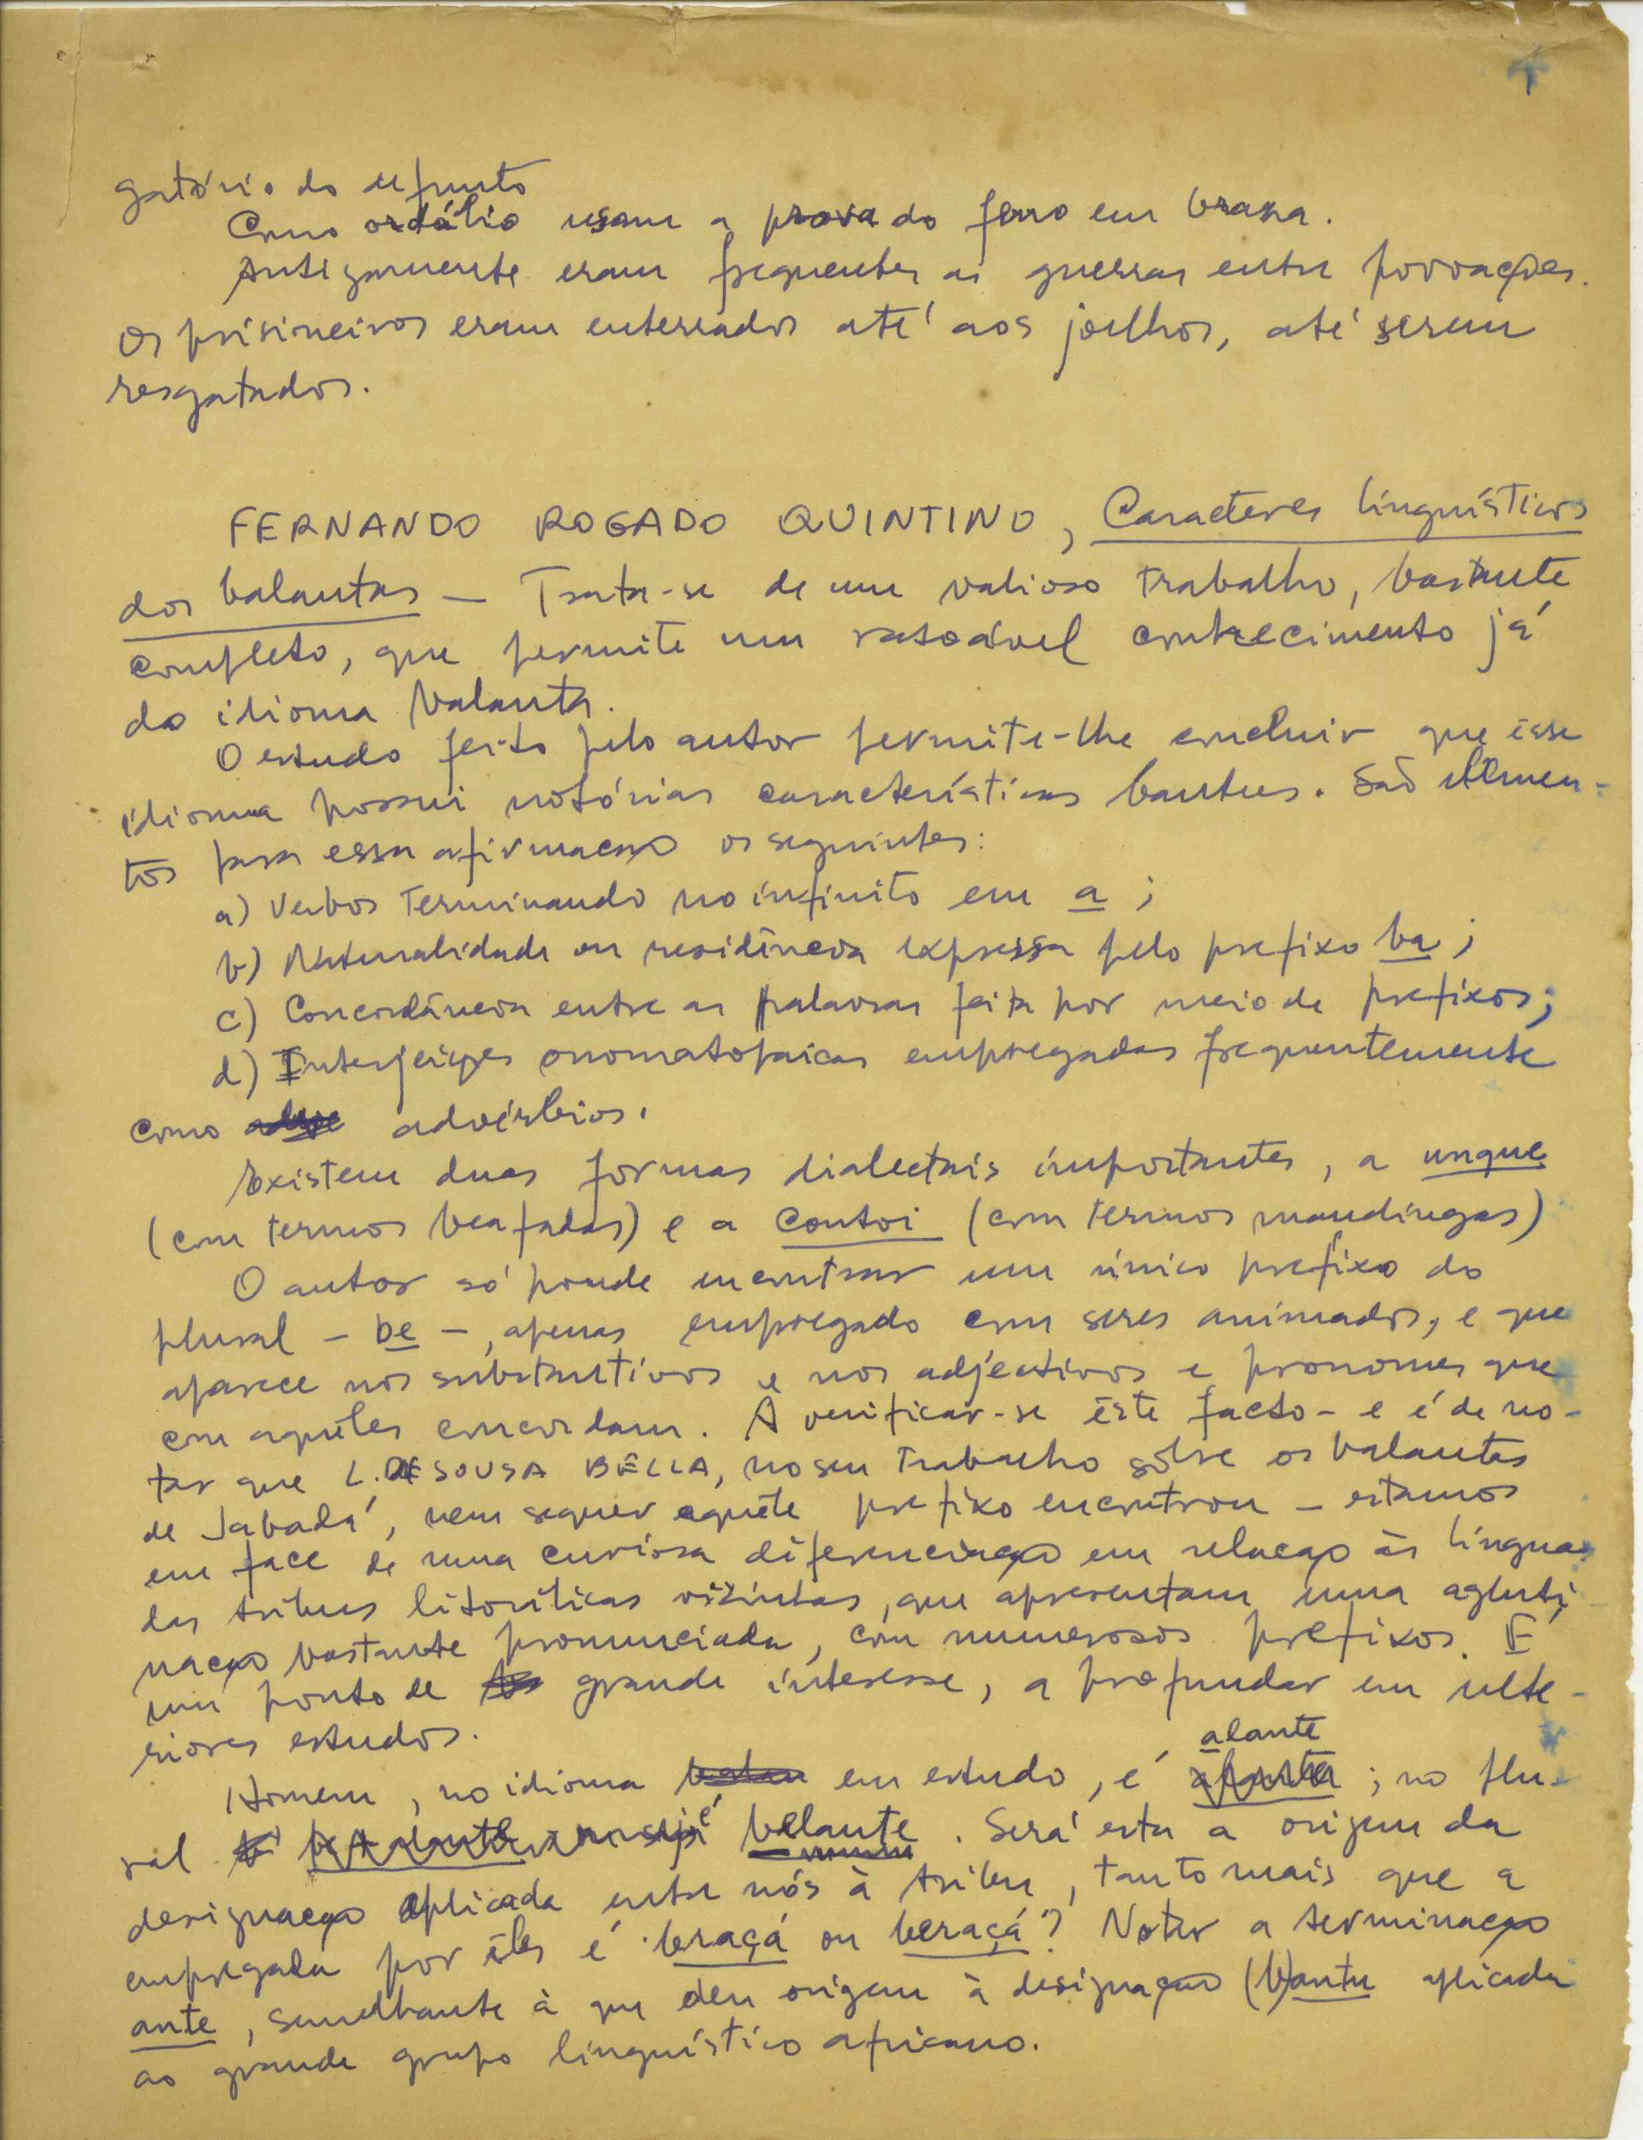 4
gatório do defunto
Como ordálio usam a prova do ferro em brasa.
Antigamente eram frequentes as guerras entre povoações.
Os prisineiros eram enterrados até aos joelhos, até serem
resgatados.
FERNANDO ROGADO QUINTINO, Caracteres linguísticos
dos balantas — Trata-se de um valioso trabalho, bastante
completo, que permite um rasoável conhecimento já
do idioma balanta.
O estudo feito pelo autor permite-lhe concluir que êsse
idioma possui notórias características bantus. São elemen-
tos para essa afirmação os seguintes:
a) Verbos terminando no infinito em a;
b) Naturalidade ou residência expressa pelo prefixo ba;
c) Concordância entre as palavras feita por meio de prefixos;
d) Interjeições onomatopaicas empregadas frequentemente
como advérbios.
Existem duas formas dialectais importantes, a unque
(com termos beafadas) e a contoi (com termos mandingas)
O autor só poude encontrar um único prefixo do
plural - be -, apenas empregado com seres animados, e que
aparece nos substantivos e nos adjectivos e pronomes que
com aquêles concordam. A verificar-se êste facto - e é de no-
tar que L. DE SOUSA BÉLLA, no seu trabalho sôbre os balantas
de Jabadá, nem sequer aquêle prefixo encontrou - estamos
em face de uma curiosa diferenciação em relação às línguas
das tribus litorálicas vizinhas, que apresentam uma agluti
nação bastante pronunciada, com numerosos prefixos. É
um ponto de grande interesse, a profundar em ulte-
riores estudos.
Homem, no idioma em estudo, é alante; no plu-
ral é belante. Será esta a origem da
designação aplicada entre nós à tribu, tanto mais que a
empregada por êles é braçá ou beraçá? Notar a terminação
ante, semelhante à que deu origem à designação (b)antu aplicada
ao grande grupo linguístico africano.